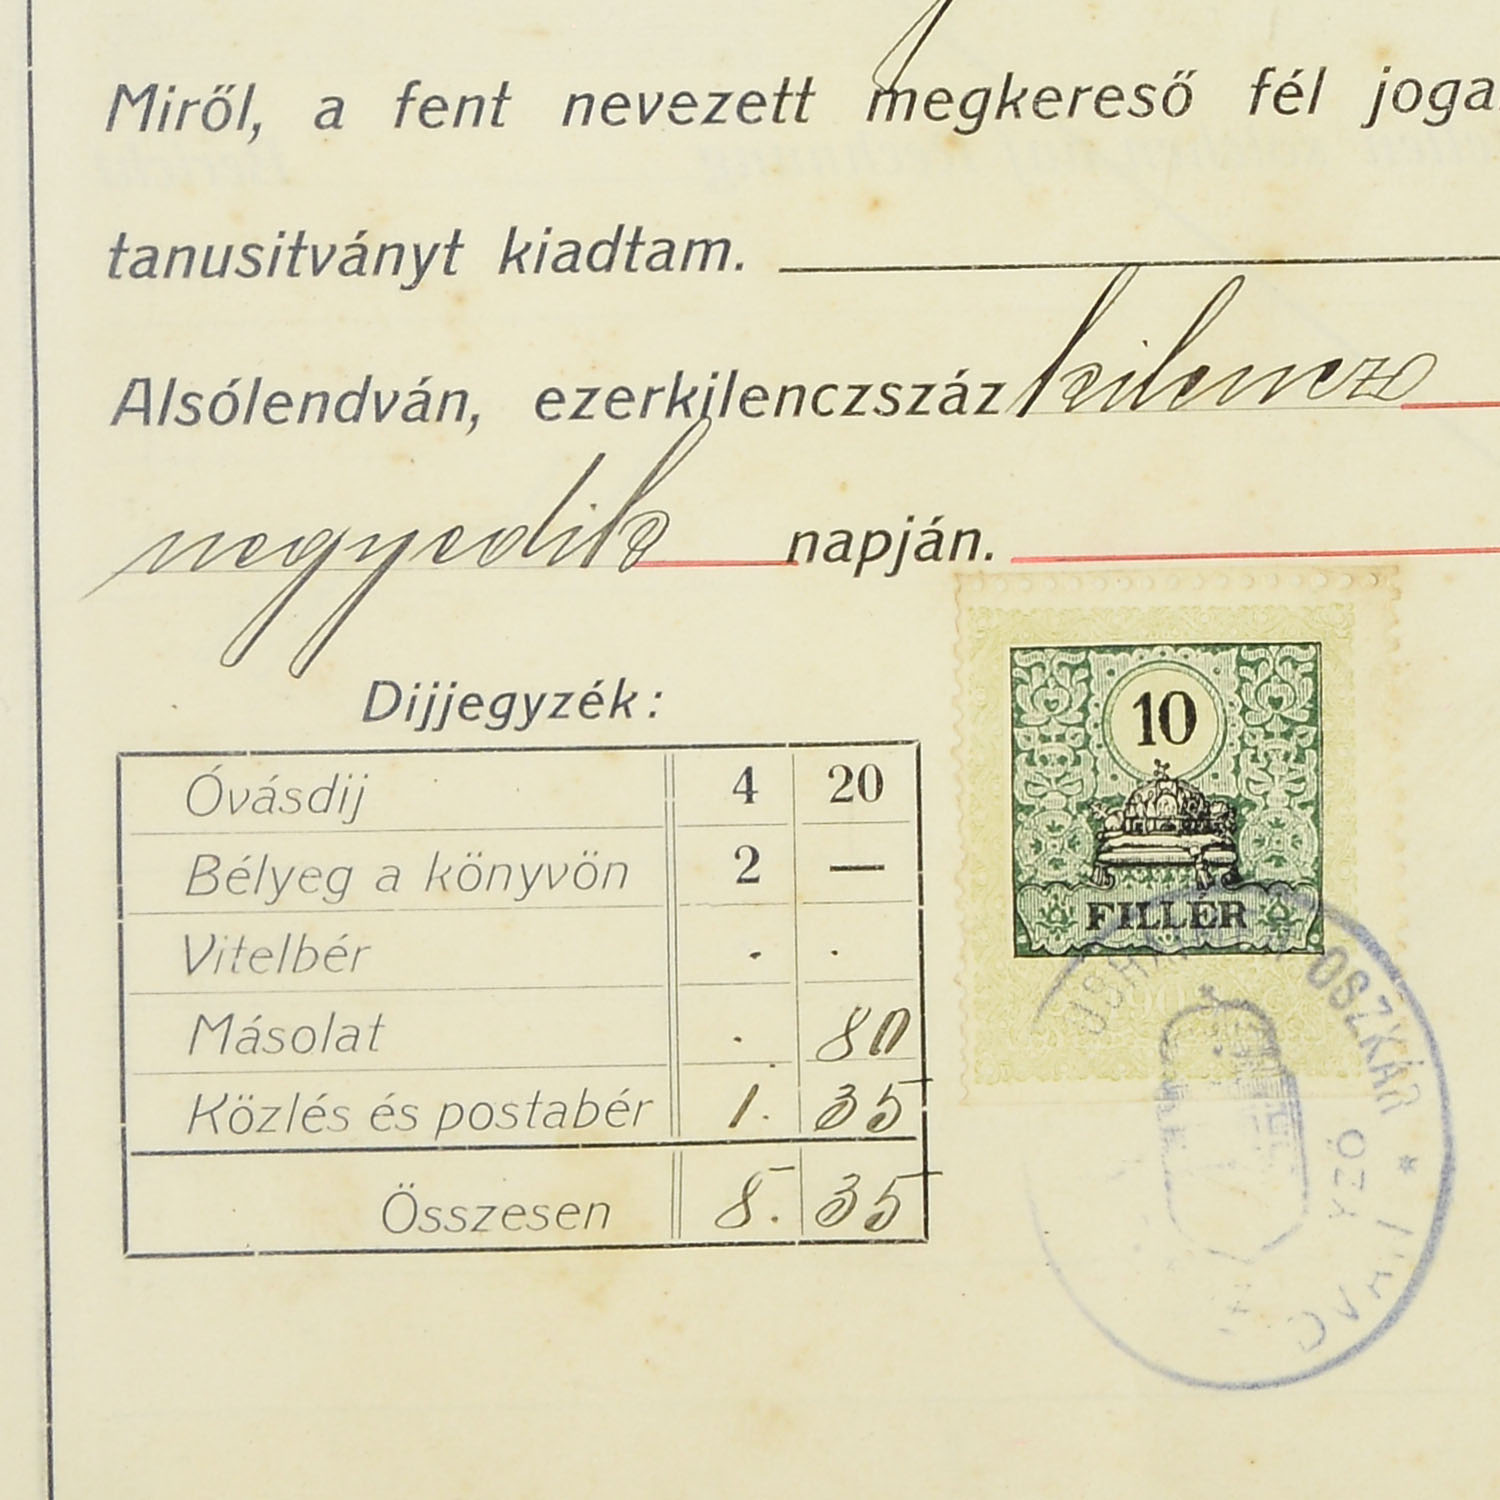 Miről, a fent nevezett megkereső fél joga
tanusitványt kiadtam.
Alsólendván, ezerkilenczszáz kilencz
negyedik napján.
Dijjegyzék:
Óvásdij 4 20
Bélyeg a könyvön 2 —
Vitelbér . .
Másolat . 80
Közlés és postabér 1. 35
Összesen 8. 35
10
FILLÉR
OSZKÁR *